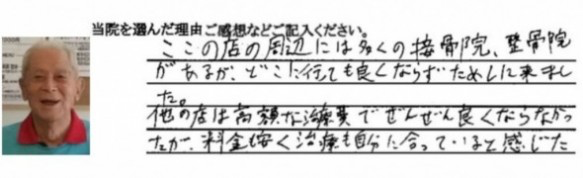 当院を選んだ理由ご感想などご記入ください。
ここの店の周辺には多くの接骨院、整骨院
があるが、どこに行っても良くならずためしに来まし
た。
他の店は高額な治療費でぜんぜん良くならなかっ
たが、料金も安く治療も自分に合っていると感じた